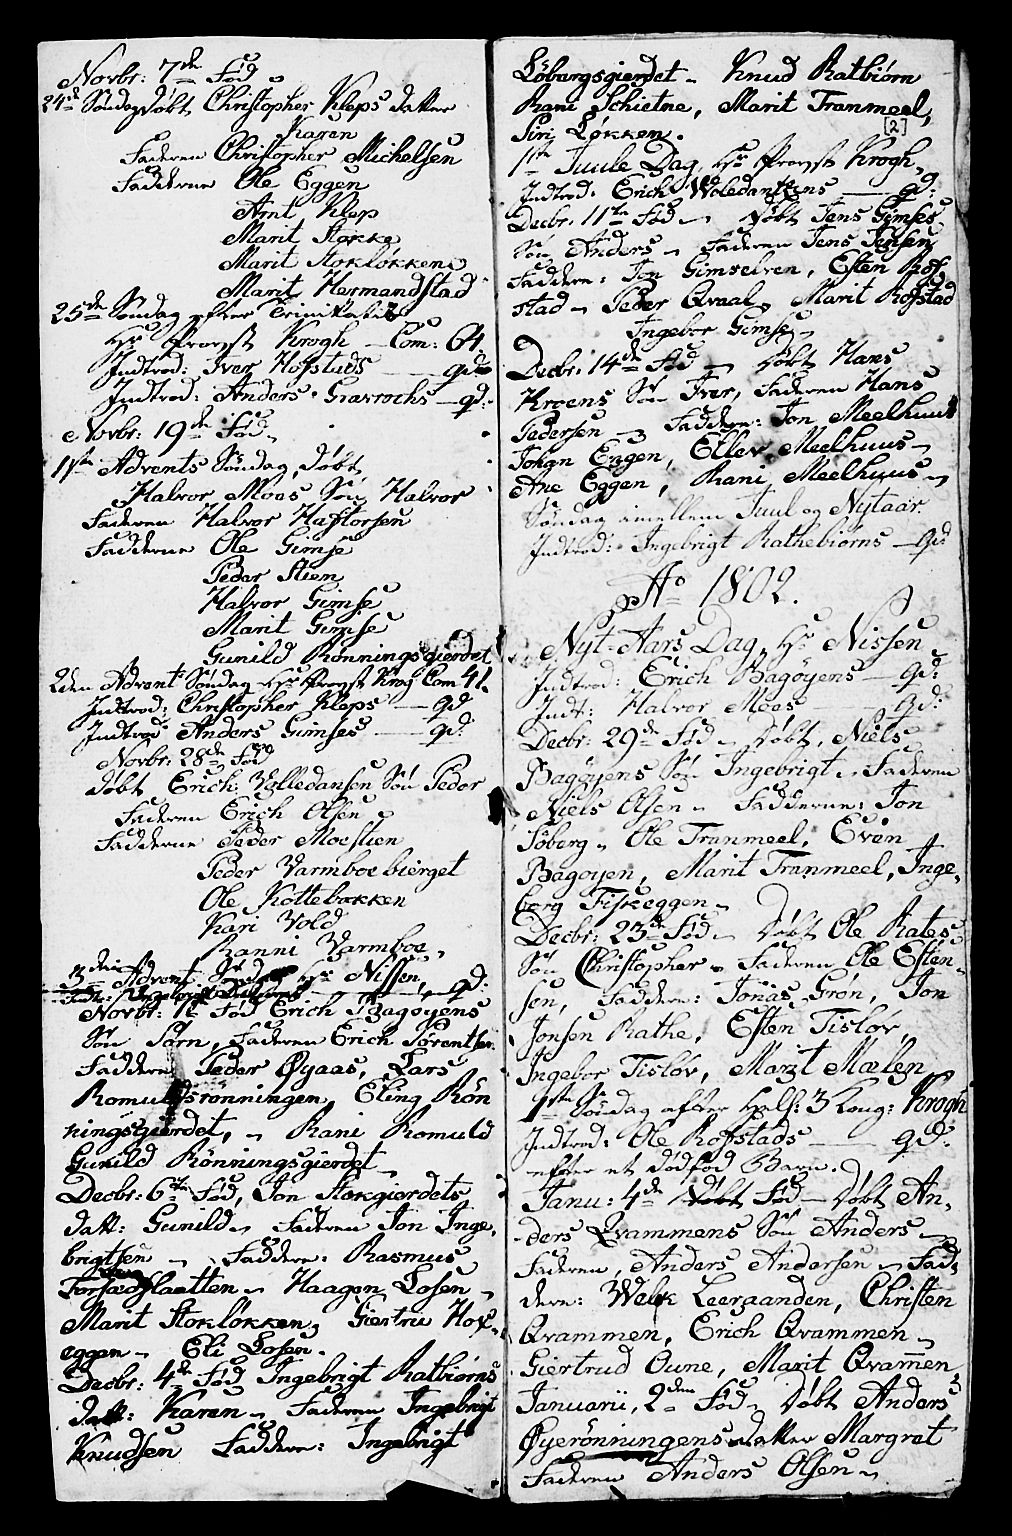 Novbr: 7de Fød
24de Søndag døbt Christopher Kleps datter
Karen
Faderen Christopher Michelsen
Fadderne Ole Eggen
Arnt Klep
Marit Støkke
Marit Stokløkken
Marit Hermandstad
25de Søndag efter Trinitatis
Hr Provst Krogh - Com: 64.
Indtrod: Iver Hofstads - qd.
Indtrod: Anders Graxrochs - qd:
Novbr: 19de Fød
1ste Advents Søndag, døbt,
Halvor Moos Søn Halvor
Faderen Halvor Haftorsen
Fadderne Ole Gimse
Peder Stien
Halvor Gimse
Marit Gimse
Gunild Rønningsgierdet
2den Advents Søndag Hr Provst Krog Com 41.
Indtrod: Christopher Kleps - qd
Indtrod Anders Gimses - qd:
Novbr: 28de Fød
døbt Erich Volledansen Søn Peder
Faderen Erich Olsen
Fadderne Peder Moestuen
Peder Varmboebierget
Ole Kottebakken
Kari Vold
Ranni Varmboe
3die Advent Hr Nissen, qd:
Novbr: Fød Erich Bagøyens
Søn Sørn, Faderen Erich Sørentsen
Faderne Peder Øyaas, Lars
Romuldsrønningen, Eling Røn
ningsgierdet, - Rani Romuld
Gunild Rønningsgierdet
Decbr: 6te Fød, Jon Stokgierdets
datt: Gunild - Faderen Jon Inge,
brigtsen - Faddere: Rasmus
Haagen Losen -
Marit Stokløkken, Giertru Hof,
eggen - Eli Losen.
Decbr: 4de Fød Ingebrigt Ratbiørns
datt: Karen - Faderen Ingebrigt
Knudsen Faddere: Ingebrigt
Løbergsgierdet - Knud Ratbiørn
Rani Schietne, Marit Tranmeel,
[2]
Siri Løkken.
1ste Juule Dag, Hr Provst Krogh,
Indtrod: Erich Woledantzens - qd:
Decbr. 11te Fød - Døbt Jens Gimses
Søn Anders - Faderen Jens Jensen
Faddere: Jon Gimselven, Esten Rof,
stad - Peder Qvaal - Marit Rofstad
Ingebor Gimse -
Decbr: 14de Fød - Døbt Hans
Kroens Søn Iver, Faderen Hans
Pedersen - Faddere: Jon Meelhuus
Johan Engen, Ellev Meelhuus -
Ane Eggen, Rani Meelhuus -
Søndag imellem Juul og Nytaar.
Indtrod: Ingebrigt Rathebiørns - qd:
Ao 1802.
Nyt-Aars Dag, Hr Nissen
Indtrod: Erich Bagøyens - qd:
Indt: Halvor Moes qd:
Decbr: 29de Fød - Døbt, Niels
Bagøyens Søn Ingebrigt - Faderen
Niels Olsen - Fadderne: Jon
Søberg - Ole Tranmeel, Even
Bagøyen, Marit Tranmeel, Inge,
borg Fiskeggen -
Decbr: 23de Fød - Døbt Ole Rates
Søn Christopher - Faderen Ole Esten,
sen, Faddere: Jonas Grøn, Jon
Jonsen Rathe, Esten Tisløv,
Ingebor Tisløv, Marit Mælen
1ste Søndag efter Hell: 3 Kong: Krogh
Indtrod: Ole Rofstads - qd:
efter et dødfød Barn.
Janu: 4de Fød - Døbt An,
ders Qvammens Søn Anders -
Faderen, Anders Andersen - Fad,
dere: Leergaanden, Christen
Qvammen, Erich Qvammen -
Giertrud Oune, Marit Qvammen
Januarii, 2den Fød - Døbt Anders
Øyerønningens datter Margret
Faderen Anders Olsen -